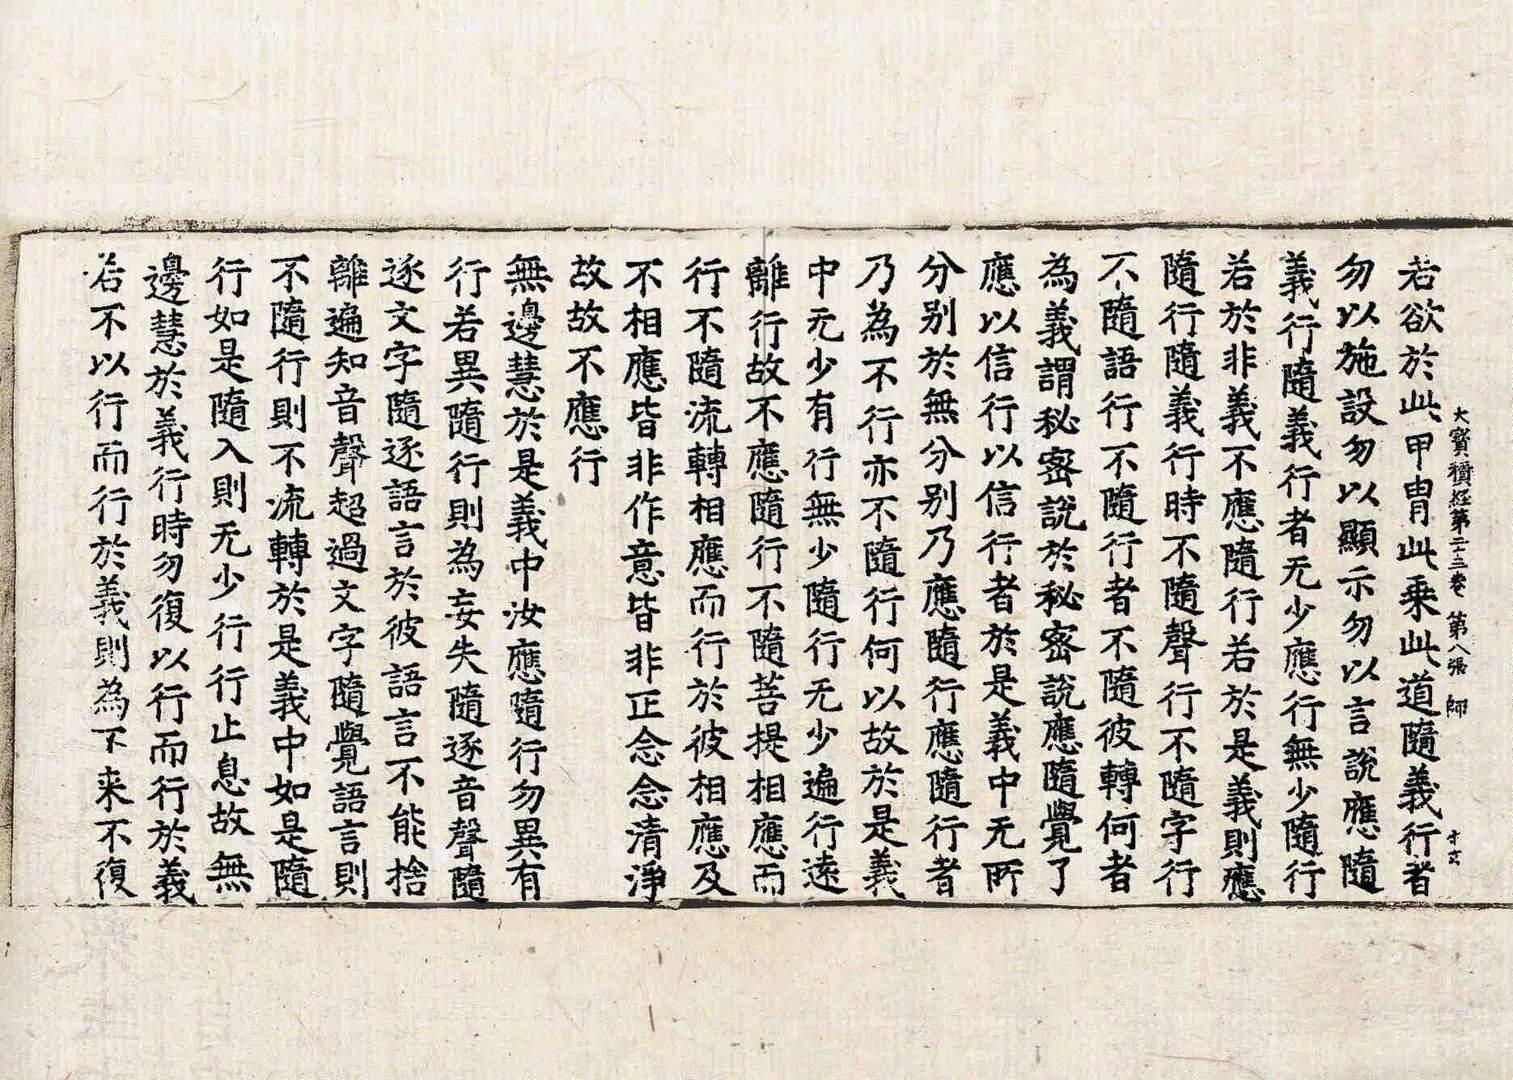 大寶積經第二十三卷 第八張 師
若欲於此甲胄此乘此道隨義行者
勿以施設勿以顯示勿以言說應隨
義行隨義行者无少應行無少隨行
若於非義不應隨行若於是義則應
隨行隨義行時不隨聲行不隨字行
不隨語行不隨行者不隨彼轉何者
為義謂秘密說於秘密說應隨覺了
應以信行以信行者於是義中无所
分别於無分别乃應隨行應隨行者
乃為不行亦不隨行何以故於是義
中无少有行無少隨行无少遍行遠
離行故不應隨行不隨菩提相應而
行不隨流轉相應而行於彼相應及
不相應皆非作意皆非正念念清淨
故故不應行
無邊慧於是義中汝應隨行勿異有
行若異隨行則為妄失隨逐音聲隨
逐文字隨逐語言於彼語言不能捨
離遍知音聲超過文字隨覺語言則
不隨行則不流轉於是義中如是隨
行如是隨入則无少行行止息故無
邊慧於義行時勿復以行而行於義
若不以行而行於義則為不来不復